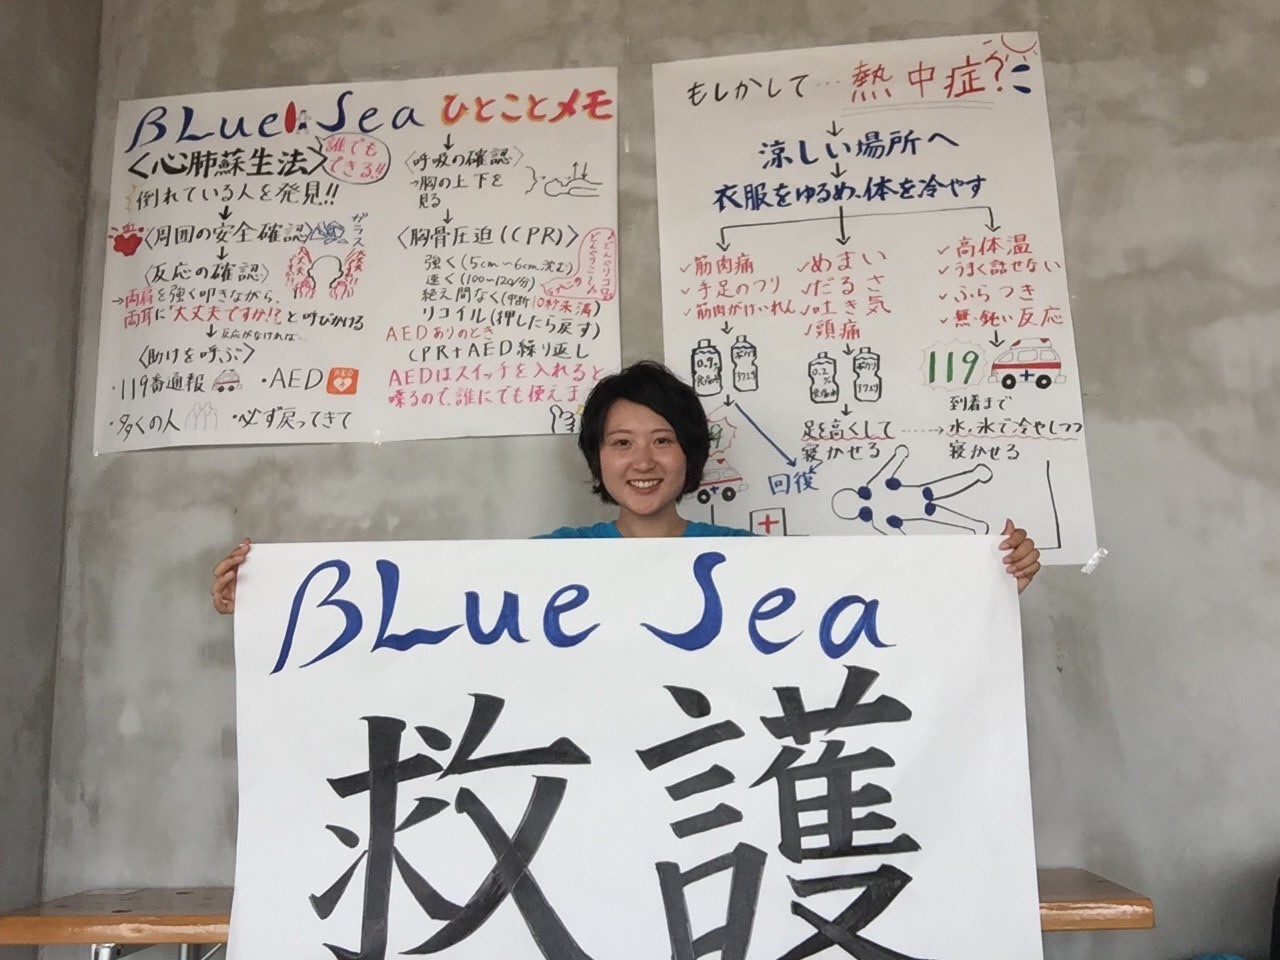 BLue Sea ひとことメモ
誰でも
できる!!
〈心肺蘇生法〉
倒れている人を発見!!
〈周囲の安全確認〉
ガラス
〈反応の確認〉
→両肩を強く叩きながら、
両耳に"大丈夫ですか!?"と呼びかける
反応がなければ…
〈助けを呼ぶ〉
・119番通報 ・AED
AED
・多くの人 ・必ず戻ってきて
〈呼吸の確認〉
→胸の上下を
見る
〈胸骨圧迫(CPR)〉
強く(5cm〜6cm沈む)
速く(100〜120/分)
絶え間なく(中断10秒未満)
リコイル(押したら戻す)
AEDありのとき
CPR+AED繰り返し
AEDはスイッチを入れると
喋るので、誰にでも使えま
もしかして…熱中症?
涼しい場所へ
衣服をゆるめ、体を冷やす
✓筋肉痛
✓手足のつり
✓筋肉がけいれん
✓めまい
✓だるさ
✓吐き気
✓頭痛
✓高体温
✓うまく話せない
✓ふらつき
✓無・鈍い反応
0.9%
食塩水
0.2
%
食塩水
119
足を高くして
寝かせる
到着まで
水、氷で冷やしつつ
寝かせる
回復
BLue Sea
救護